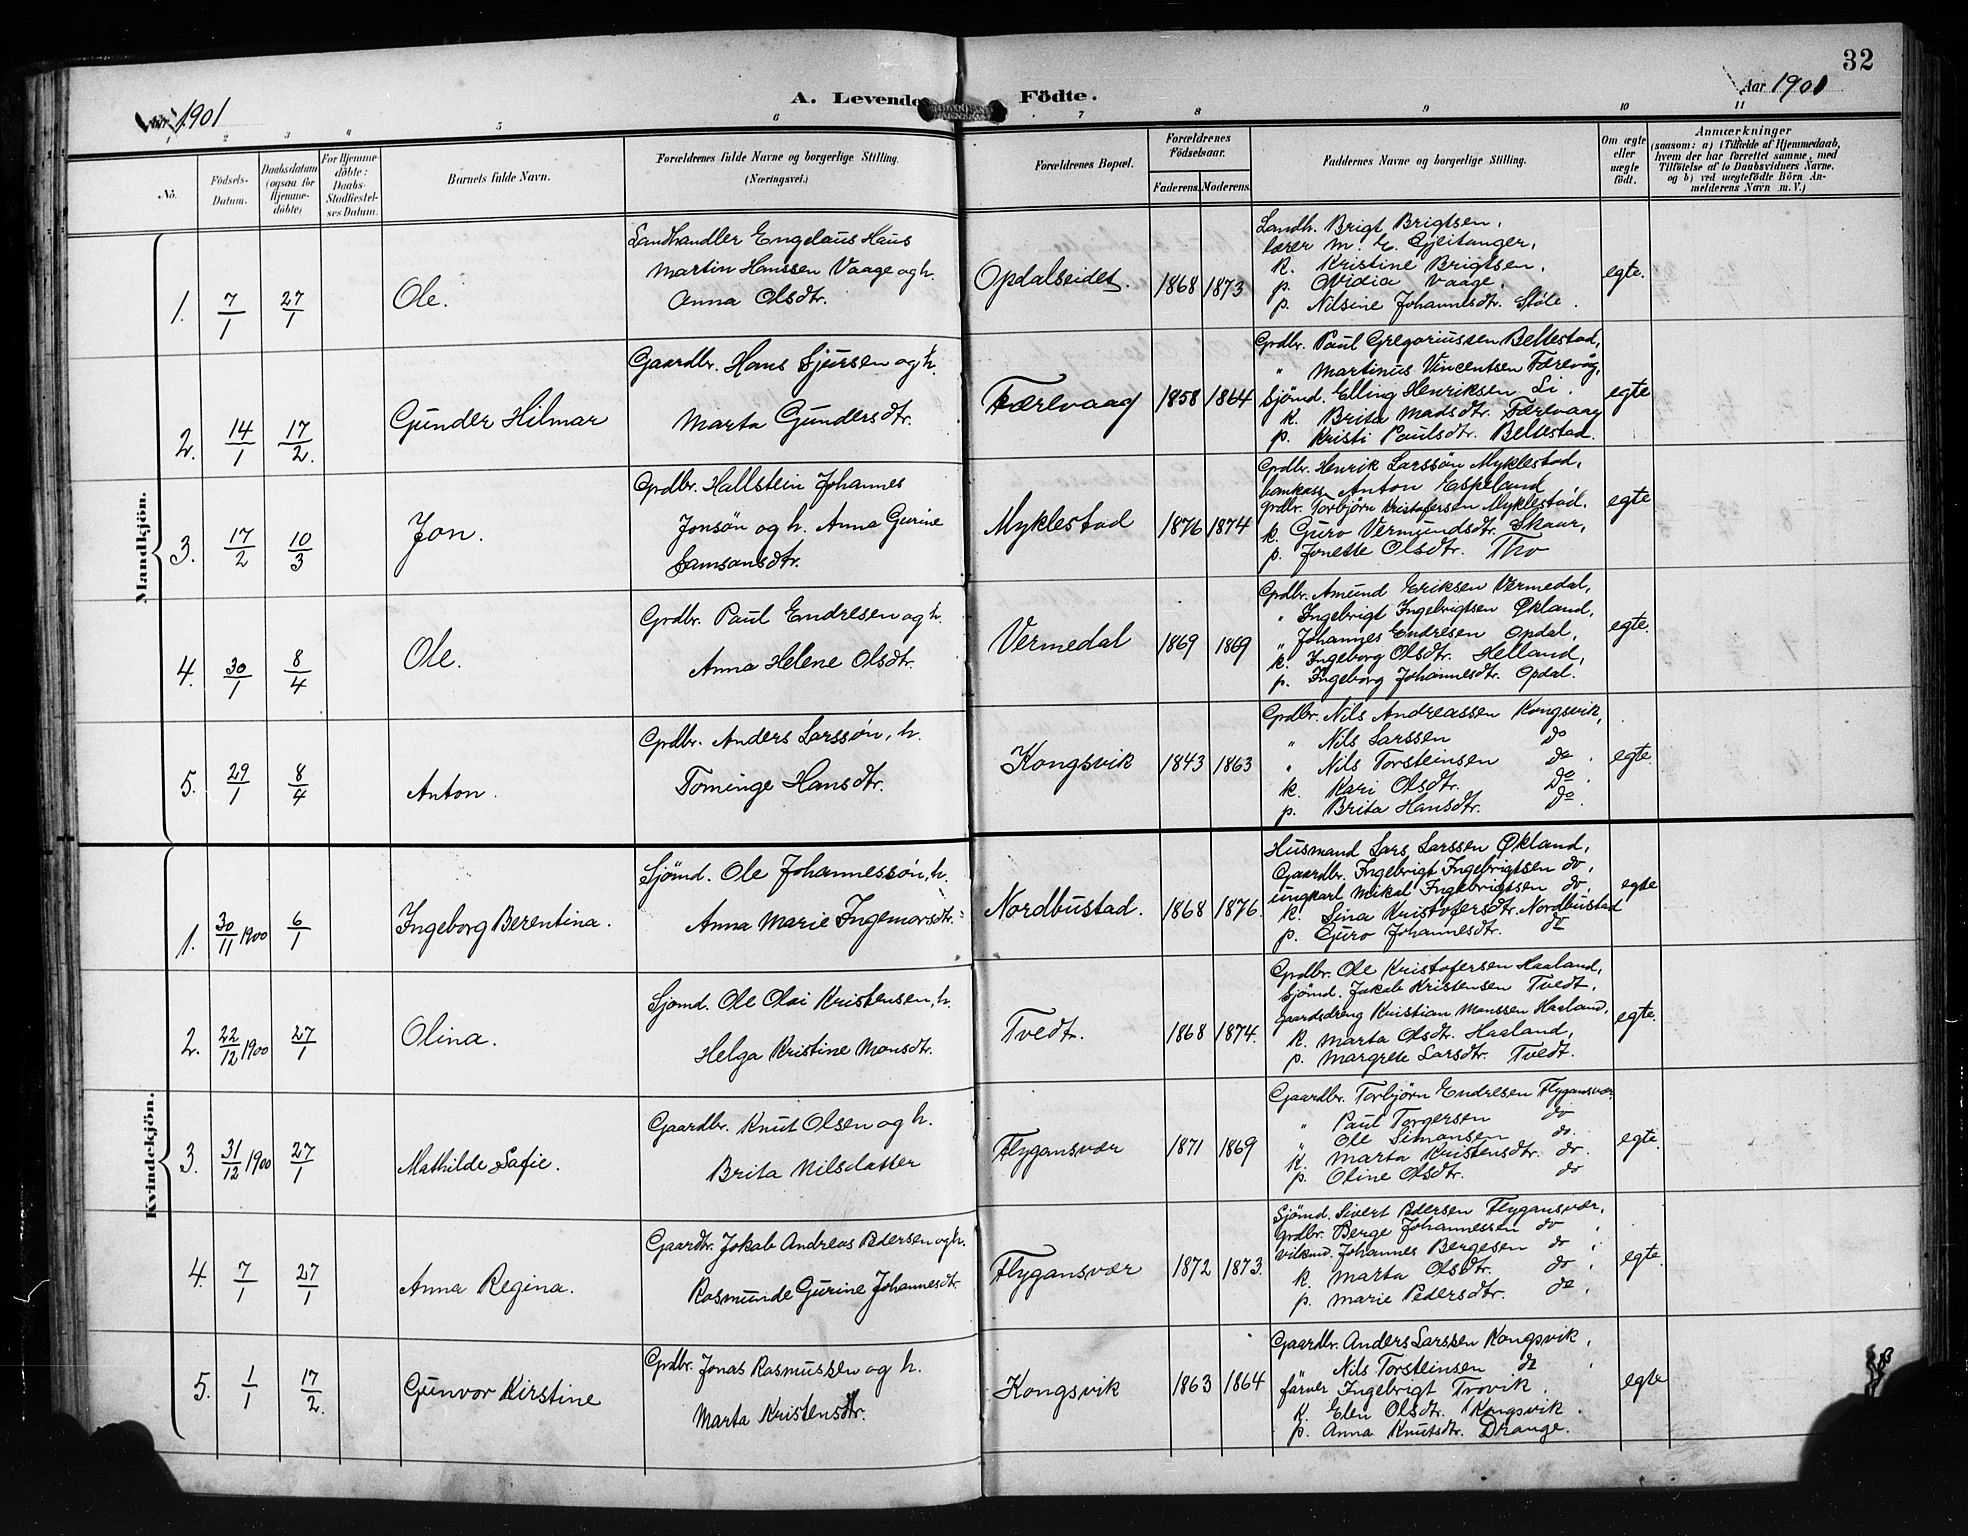 32
Aar 1901
A. Levende Födte.
Aar 1901
1 2 3 4 5 6 7 8 9 10 11
No.
Födsels-Datum.
Daabsdatum (ogsaa for Hjemmedöbte)
For Hjemmedöbte: Daabs-Stadfæstelses Datum.
Barnets fulde Navn.
Forældrenes fulde Navne og borgerlige Stilling. (Næringsvei.)
Forældrenes Bopæl.
Forældrenes Födselsaar.
Faderens. Moderens.
Faddernes Navne og borgerlige Stilling.
Om ægte eller uægte födt.
Anmærkninger
(saasom: a) i Tilfælde af Hjemmedaab,
hvem der har forrettet samme, med
Tilföielse af to Daabsvidners Navne.
og b) ved uægtefödte Börn An-
melderens Navn m. V.)
Mandkjön.
1. 7/1 27/1 Ole.
Landhandler Engelaus Haus
Martin Hanssen Vaage og h.
Anna Olsdtr.
Opdalseidet. 1868 1873
Landh. Brigt Brigtsen,
lærer M. E. Gjeitanger,
k. Kristine Brigtsen,
p. Ovidia Vaage,
p. Nilsine Johannesdtr. Støle.
egte.
2. 14/1 17/2. Gunder Hilmar
Gaardbr. Hans Sjursen og h.
Marta Gundersdtr.
Færevaag 1858 1864
Grdbr. Paul Gregoriussen Bellestad,
" Martinus Vincentsen Færevåg,
Sjömd. Elling Henriksen Li.
k. Brita Madsdtr. Færevaag
p. Kristi Paulsdtr. Bellestad.
egte
3. 17/2 10/3 Jon.
Grdbr. Hallstein Johannes
Jonsön og h. Anna Gurine
Samsonsdtr.
Myklestad 1876 1874
Grdbr. Henrik Larssøn Myklestad,
Anton Espeland
grdbr. Torbjörn Kristofersen Myklestad.
k. Guro Vermundsdtr. Skaar,
p. Jonette Olsdtr. Tho
egte
4. 30/1 8/4 Ole.
Grdbr. Paul Endresen og h.
Anna Helene Olsdtr.
Vermedal 1869 1869
Grdbr. Amund Eriksen Vermedal,
" Ingebrigt Ingebrigtsen Økland,
" Johannes Endresen Opdal,
k. Ingeborg Olsdtr. Helland,
p. Ingeborg Johannesdtr. Opdal.
egte.
5. 29/1 8/4 Anton.
Grdbr. Anders Larssøn, h.
Tominge Hansdtr.
Kongsvik 1843 1863
Grdbr. Nils Andreassen Kongsvik,
" Nils Larssen do
" Nils Torsteinsen do.
k. Kari Olsdtr. do.
p. Brita Hansdtr. do.
egte.
Kvindekjön.
1. 30/11 1900 6/1 Ingeborg Berentina.
Sjömd. Ole Johannessön, h.
Anna Marie Ingemarsdtr.
Nordbustad. 1868 1876.
Husmand Lars Larssen Økland,
Gaardbr. Ingebrigt Ingebrigtsen do,
ungkarl Mikal Ingebrigtsen do.
k. Sina Kristofersdtr. Nordbustad
p. Guro Johannesdtr. do
egte
2. 22/12 1900 27/1 Olina.
Sjömd. Ole Olai Kristensen, h.
Helga Kristine Monsdtr.
Tvedt. 1868 1874.
Grdbr. Ole Kristofersen Haaland,
Sjömd. Jakob Kristensen Tvedt,
gaardsdreng Kristian Monssen Haaland,
k. Marta Olsdtr. Haaland,
p. Margrete Larsdtr. Tvedt.
egte.
3. 31/12 1900 27/1 Mathilde Sofie.
Gaardbr. Knut Olsen og h.
Brita Nilsdatter
Flygansvær 1871 1869
Gaardbr. Torbjørn Endresen Flygansvær
" Paul Torgersen do
" Ole Simonsen do.
k. Marta Kristensdtr. do.
p. Oline Olsdtr. do
egte.
4. 7/1 27/1 Anna Regina.
Gaardbr. Jakob Andreas Pedersen og h.
Rasmunde Gurine Johannesdtr
Flygansvær 1872 1873.
Sjömd. Sivert Pedersen Flygansvær,
grdbr. Berge Johannessen do,
Johannes Bergesen do,
k. Marta Olsdtr. do,
p. Marie Pedersdtr. do,
egte.
5. 1/1 17/2. Gunvor Kirstine
Grdbr. Jonas Rasmussen og h.
Marta Kristensdtr.
Kongsvik 1863 1864
Gaardbr. Anders Larssen Kongsvik,
" Nils Torsteinsen do
farver Ingebrigt Trovik.
k. Elen Olsdtr. Kongsvik.
p. Anna Knutsdtr. Drange.
egte